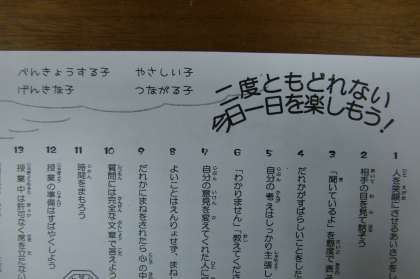 べんきょうする子　やさしい子
げんきな子　つながる子
二度ともどれない
今日一日を楽しもう！
1 人を笑顔にさせるあいさつを
2 相手の目を見て話そう
3 「聞いているよ」を態度で表
4 だれかがすばらしいことをした
5 自分の考えはしっかり主張し
6 「わかりません」「教えてくださ
7 自分の意見を変えてくれた人に
8 よいことはえんりょせず、まね
9 だれかにまねをされたら心の中
10 質問には完全な文章で答えよう
11 時間をまもろう
12 授業の準備はすばやくしよう
13 授業中は許可なく席を立たない